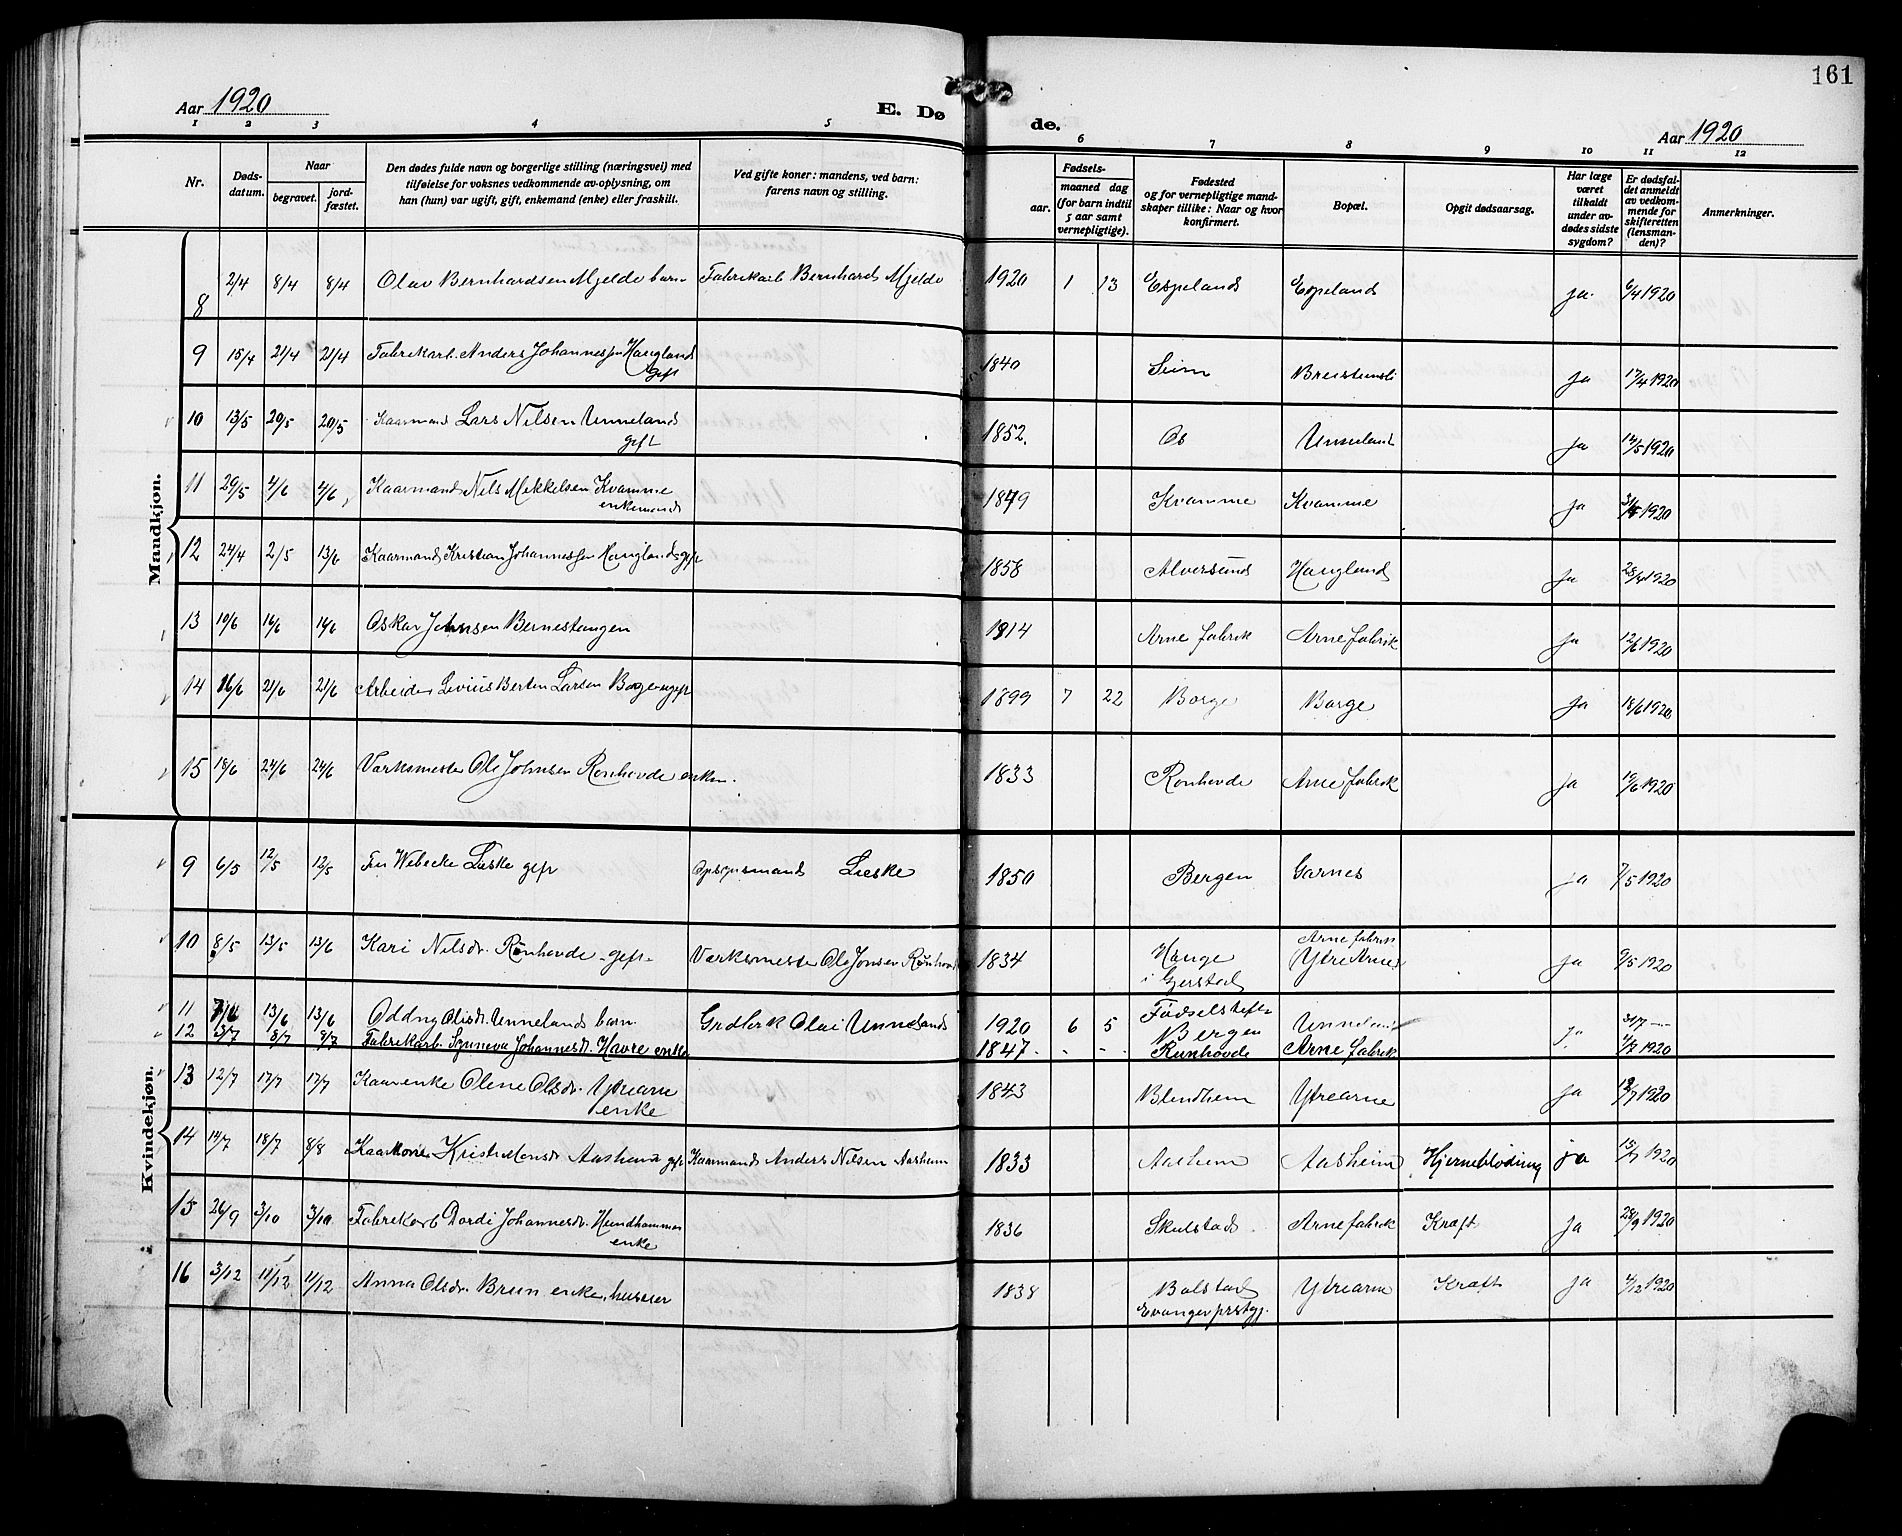 161
Aar 1920 E. Dø de. Aar 1920
1 2 3 4 5 6 7 8 9 10 11 12
Nr. Døds-datum. Naar begravet. jord-fæstet. Den dødes fulde navn og borgerlige stilling (næringsvei) med tilføielse for voksnes vedkommende av-oplysning, om han (hun) var ugift, gift, enkemand (enke) eller fraskilt. Ved gifte koner: mandens, ved barn: farens navn og stilling. Fødsels- aar. maaned dag (for barn indtil 5 aar samt vernepligtige). Fødested og for vernepligtige mand-skaper tillike: Naar og hvor konfirmert. Bopæl. Opgit dødsaarsag. Har læge været tilkaldt under av-dødes sidste sygdom? Er dødsfal-det anmeldt av vedkom-mende for skifteretten (lensman-den)? Anmerkninger.
Mandkjøn.
8 2/4 8/4 8/4 Olav Bernhardsen Mjelde barn Fabrikarb Bernhard Mjelde 1920 1 13 Espeland Espeland ja 6/4 1920
9 15/4 21/4 21/4 Fabrikarb. Anders Johannessen Haugland gift 1840 Seim ja 17/4 1920
10 13/5 20/5 20/5 Kaarmand Lars Nilsen Unneland gift 1852. Os Unneland ja 14/5 1920
11 29/5 4/6 4/6 Kaarmand Nils Mikkelsen Kvamme enkemand 1849 Kvamme Kvamme ja 31/5 1920
12 24/4 2/5 13/6 Kaarmand Kristian Johannessen Haugland gift 1858 Alversund Haugland ja 28/4 1920
13 10/6 16/6 16/6 Oskar Johnsen Bernestangen 1914 Arne fabrik Arne fabrik ja 12/6 1920
14 16/6 21/6 21/6 Arbeider Livius Berten Larsen Borge ugift 1899 7 22 Borge Borge ja 18/6 1920
15 18/6 24/6 24/6 Værksmester Ole Johnsen Rønhovde enkem. 1833 Rønhovde Arne fabrik ja 19/6 1920
Kvindekjøn.
9 6/5 12/5 12/5 Fru Webecke Lieske gift Opsynsmand Lieske 1850 Bergen Garnes ja 7/5 1920
10 8/5 13/5 13/6 Kari Nilsdr. Rønhovde - gift - Værksmester Ole Jonsen Rønhovd 1834 Hauge i Gjerstad Arne fabrik Ytre Arne ja 9/5 1920
11 13/6 13/6 Oddny Olisdr. Unneland barn Grdbrk Olai Unneland 1920 6 5 Fødselstiften Bergen Unneland ja
12 3/7 8/7 8/7 Fabrikarb. Synneva Johannesdr. Havre enke 1847 - - - Runhovde Arne fabrik 1920
13 12/7 17/7 17/7 Kaarenke Oline Olsdr. Ytrearne enke 1843 Blindhem Ytrearne ja 1920
14 14/7 18/7 8/8 Kaarkone Kristi Monsdr Aasheim gift Kaarmand Anders Nilsen Aasheim 1833 Aasheim Aasheim Hjerneblødning ja 15/7 1920
15 26/9 3/10 3/10 Fabrikarb Dordi Johannesdr. Hundhammer enke 1836 Skulstad. Arne fabrik Kræft Ja 28/9 1920
16 3/12 11/12 11/12 Anna Olsdr. Brun enke, husier 1838 Bolstad Evanger prstgj. Ytrearne Kræft Ja 4/12 1920